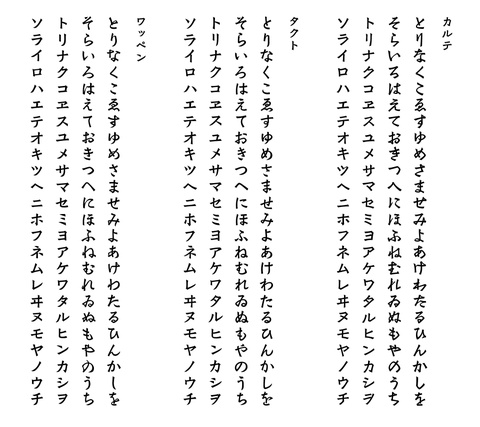 カルテ
とりなくこゑすゆめさませみよあけわたるひんかしを
そらいろはえておきつへにほふねむれゐぬもやのうち
トリナクコヱスユメサマセミヨアケワタルヒンカシヲ
ソライロハエテオキツヘニホフネムレヰヌモヤノウチ
タクト
とりなくこゑすゆめさませみよあけわたるひんかしを
そらいろはえておきつへにほふねむれゐぬもやのうち
トリナクコヱスユメサマセミヨアケワタルヒンカシヲ
ソライロハエテオキツヘニホフネムレヰヌモヤノウチ
ワッペン
とりなくこゑすゆめさませみよあけわたるひんかしを
そらいろはえておきつへにほふねむれゐぬもやのうち
トリナクコヱスユメサマセミヨアケワタルヒンカシヲ
ソライロハエテオキツヘニホフネムレヰヌモヤノウチ